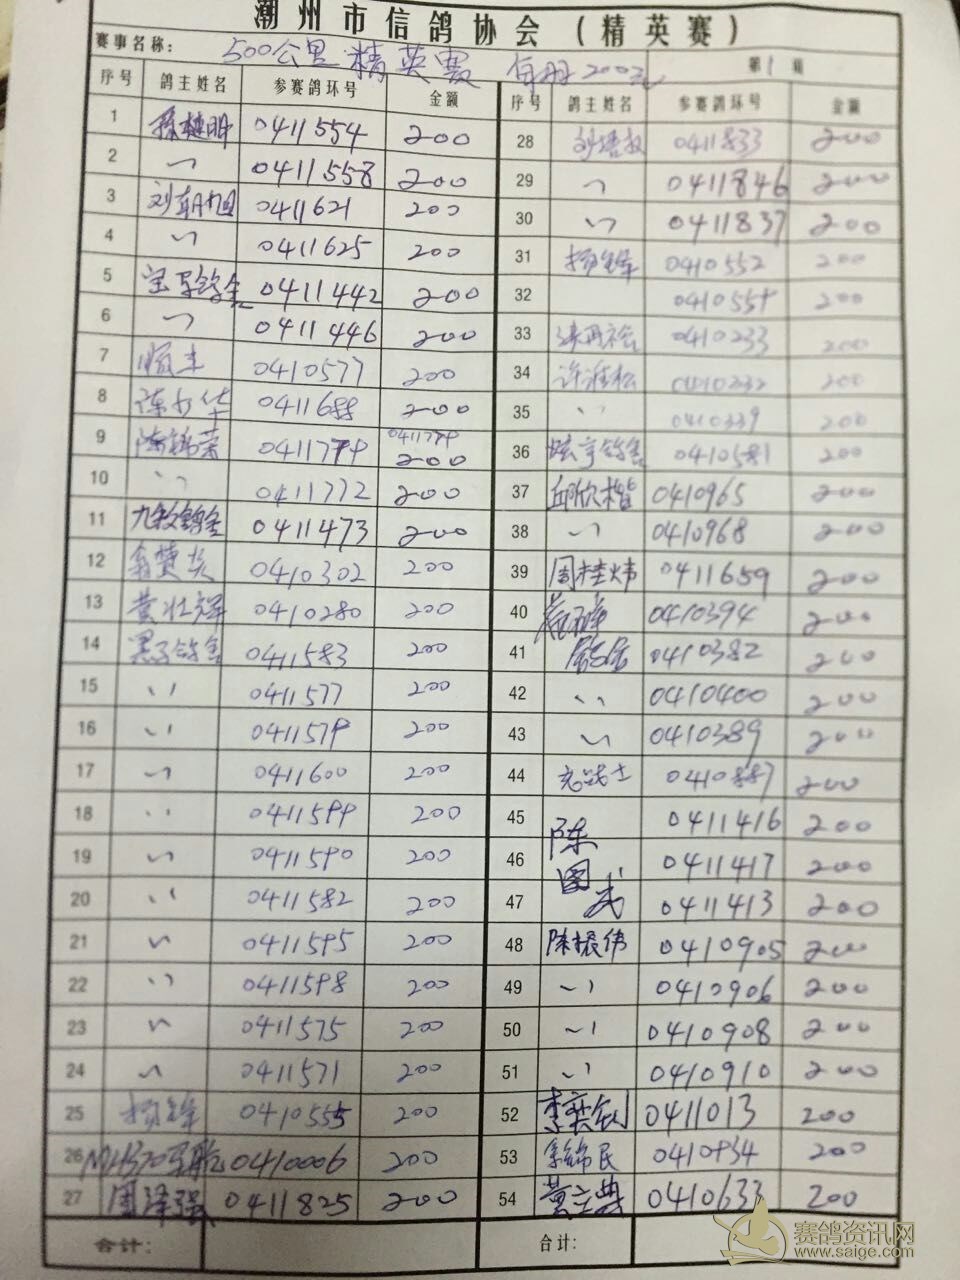 潮州市信鸽协会(精英赛)
赛事名称: 500公里精英赛 200元 第1辑
序号 鸽主姓名 参赛鸽环号 金额 序号 鸽主姓名 参赛鸽环号 金额
1 0411554 200 28 0411833 200
2 〃 0411558 200 29 〃 0411846 200
3 刘朝旭 0411621 200 30 〃 0411837 200
4 〃 0411625 200 31 杨锋 0410552 200
5 0411442 200 32 0410559 200
6 〃 0411446 200 33 0410233 200
7 0410577 200 34 0410232 200
8 0411688 200 35 〃 0410339 200
9 陈锦荣 0411779 0411779 200 36 0410581 200
10 〃 0411772 200 37 邱欣楷 0410965 200
11 0411473 200 38 〃 0410968 200
12 0410302 200 39 周桂炜 0411659 200
13 黄壮辉 0410280 200 40 0410394 200
14 黑子鸽舍 0411583 200 41 鸽舍 0410382 200
15 〃 0411577 200 42 〃 0410400 200
16 〃 0411579 200 43 〃 0410389 200
17 〃 0411600 200 44 0410887 200
18 〃 0411599 200 45 陈 0411416 200
19 〃 0411590 200 46 国 0411417 200
20 〃 0411582 200 47 武 0411413 200
21 〃 0411595 200 48 陈振伟 0410905 200
22 〃 0411598 200 49 〃 0410906 200
23 〃 0411575 200 50 〃 0410908 200
24 〃 0411571 200 51 〃 0410910 200
25 杨锋 0410555 200 52 李奕剑 0411013 200
26 0410006 200 53 余锦民 0410934 200
27 周泽强 0411825 200 54 黄立典 0410633 200
合计: 合计:
赛鸽资讯网
www.saige.com